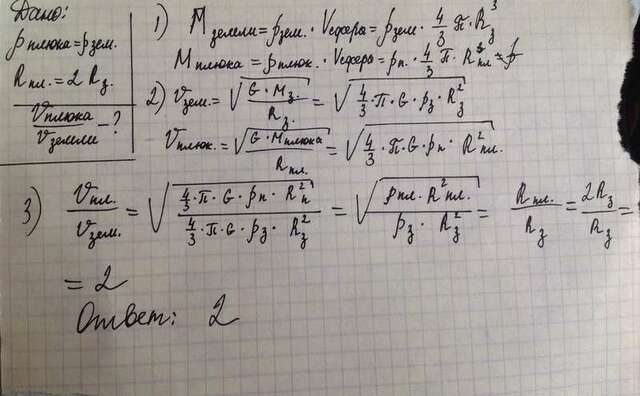 Дано:
ρ плюка = ρ зем.
R пл. = 2 R з.
V плюка / V земли - ?
1) M земли = ρ зем. · V сферы = ρ зем. · 4/3 · π · R з ³
M плюка = ρ плюк. · V сферы = ρ п. · 4/3 π · R ³ пл =
2) V зем. = √(G · M з. / R з.) = √(4/3 · π · G · ρ з · R з ²)
V плюк. = √(G · M плюка / R пл.) = √(4/3 · π · G · ρ п · R ² пл.)
3) V пл. / V зем. = √(4/3 · π · G · ρ п · R п ² / 4/3 · π · G · ρ з · R з ²) = √(ρ пл. · R ² пл. / ρ з · R з ²) = R пл. / R з = 2 R з / R з =
= 2
Ответ: 2